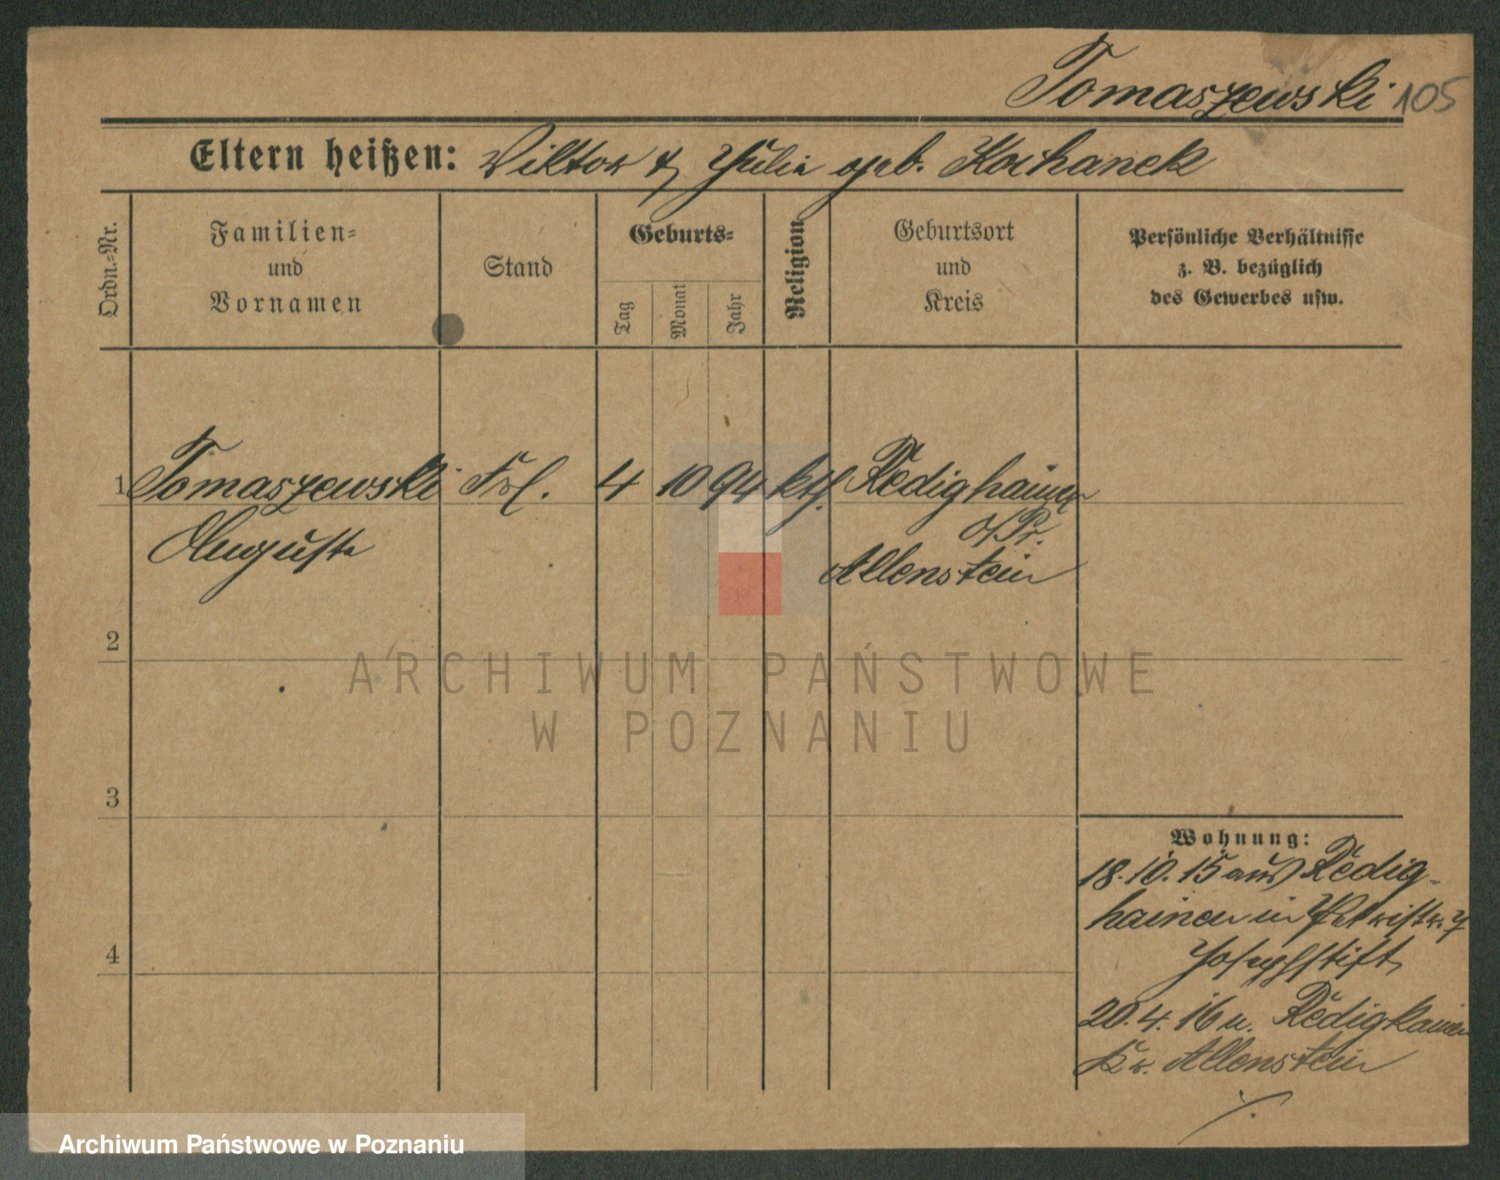 Tomaszewski 105
Eltern heißen: Viktor & Julia geb. Kochanek
Ordn.-Nr.
Familien-
und
Vornamen
Stand
Geburts-
Tag
Monat
Jahr
Religion
Geburtsort
und
Kreis
Persönliche Verhältnisse
z. B. bezüglich
des Gewerbes usw.
1 Tomaszewski Frl. 4 10 94 kth. Redighainen
O/Pr.
Auguste
Allenstein
2
ARCHIWUM PAŃSTWOWE
W POZNANIU
3
Wohnung:
18.10.15 aus Redig-
hainen in Petristr. 7
Josephstift
4
20.4.16 n. Redigkainen
Kr. Allenstein
Archiwum Państwowe w Poznaniu